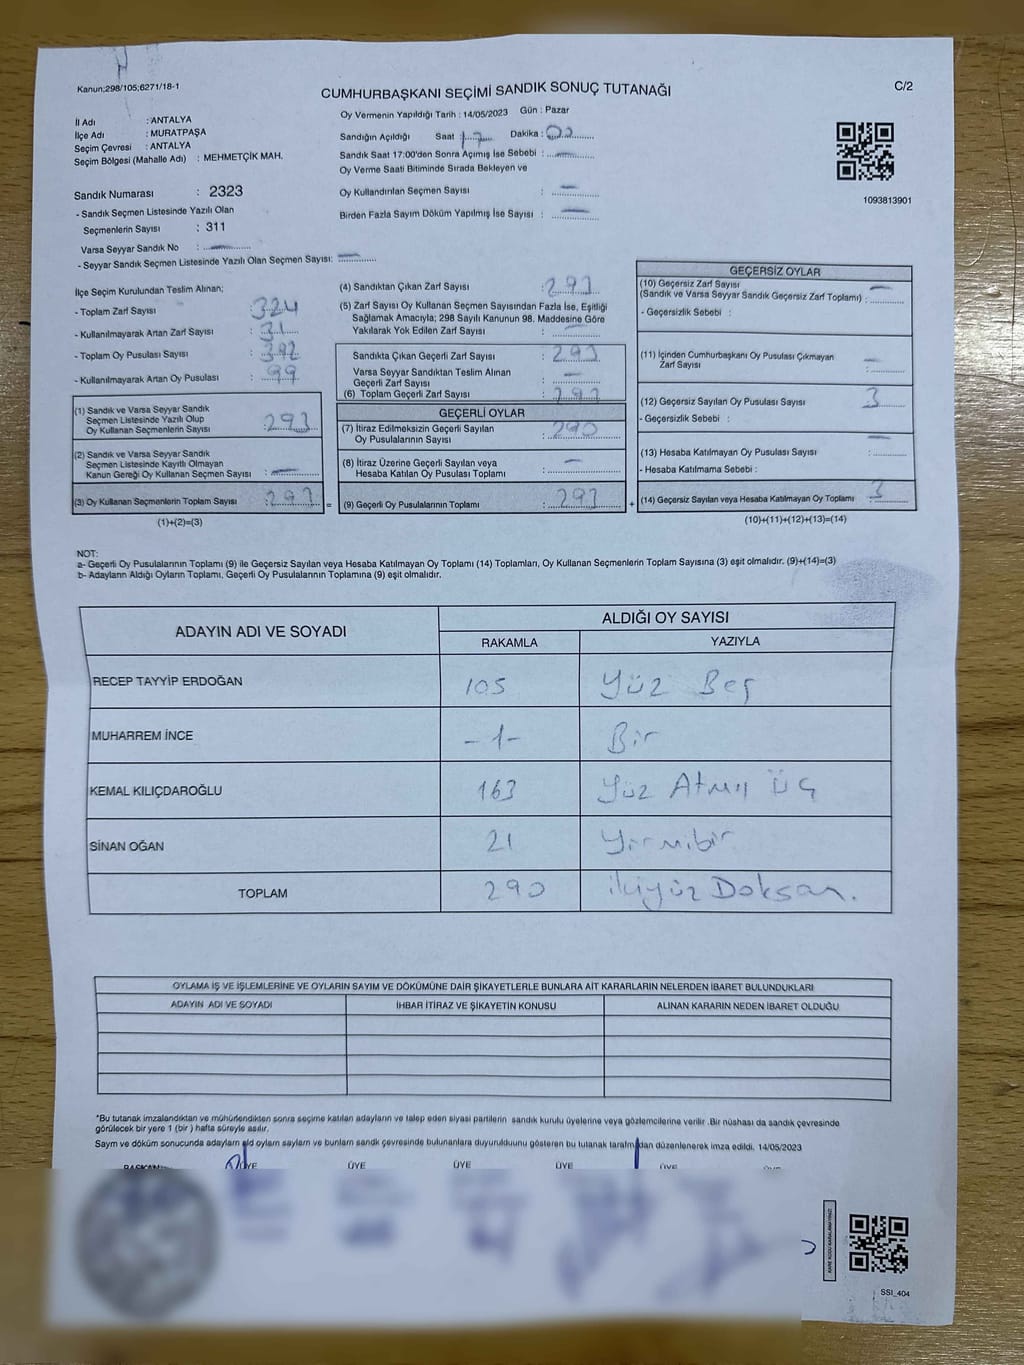 Kanun;298/105;6271/18-1
CUMHURBAŞKANI SEÇİMİ SANDIK SONUÇ TUTANAĞI
C/2
İl Adı : ANTALYA
İlçe Adı : MURATPAŞA
Seçim Çevresi : ANTALYA
Seçim Bölgesi (Mahalle Adı) : MEHMETÇİK MAH.
Sandık Numarası : 2323
- Sandık Seçmen Listesinde Yazılı Olan
Seçmenlerin Sayısı : 311
Varsa Seyyar Sandık No : —
- Seyyar Sandık Seçmen Listesinde Yazılı Olan Seçmen Sayısı: —
Oy Vermenin Yapıldığı Tarih : 14/05/2023 Gün : Pazar
Sandığın Açıldığı Saat : 17 Dakika : 00
Sandık Saat 17:00'den Sonra Açımış İse Sebebi : —
Oy Verme Saati Bitiminde Sırada Bekleyen ve
Oy Kullandırılan Seçmen Sayısı : —
Birden Fazla Sayım Döküm Yapılmış İse Sayısı : —
1093813901
İlçe Seçim Kurulundan Teslim Alınan;
- Toplam Zarf Sayısı : 324
- Kullanılmayarak Artan Zarf Sayısı : 31
- Toplam Oy Pusulası Sayısı : 392
- Kullanılmayarak Artan Oy Pusulası : 99
(1) Sandık ve Varsa Seyyar Sandık
Seçmen Listesinde Yazılı Olup
Oy Kullanan Seçmenlerin Sayısı : 293
(2) Sandık ve Varsa Seyyar Sandık
Seçmen Listesinde Kayıtlı Olmayan
Kanun Gereği Oy Kullanan Seçmen Sayısı : —
(3) Oy Kullanan Seçmenlerin Toplam Sayısı : 293 =
(1)+(2)=(3)
(4) Sandıktan Çıkan Zarf Sayısı : 293
(5) Zarf Sayısı Oy Kullanan Seçmen Sayısından Fazla İse, Eşitliği
Sağlamak Amacıyla; 298 Sayılı Kanunun 98. Maddesine Göre
Yakılarak Yok Edilen Zarf Sayısı : —
Sandıkta Çıkan Geçerli Zarf Sayısı : 293
Varsa Seyyar Sandıktan Teslim Alınan
Geçerli Zarf Sayısı : —
(6) Toplam Geçerli Zarf Sayısı : 293
GEÇERLİ OYLAR
(7) İtiraz Edilmeksizin Geçerli Sayılan
Oy Pusulalarının Sayısı : 290
(8) İtiraz Üzerine Geçerli Sayılan veya
Hesaba Katılan Oy Pusulası Toplamı : —
(9) Geçerli Oy Pusulalarının Toplamı : 293 +
GEÇERSİZ OYLAR
(10) Geçersiz Zarf Sayısı
(Sandık ve Varsa Seyyar Sandık Geçersiz Zarf Toplamı) : —
- Geçersizlik Sebebi :
(11) İçinden Cumhurbaşkanı Oy Pusulası Çıkmayan
Zarf Sayısı : —
(12) Geçersiz Sayılan Oy Pusulası Sayısı : 3
- Geçersizlik Sebebi :
(13) Hesaba Katılmayan Oy Pusulası Sayısı : —
- Hesaba Katılmama Sebebi :
(14) Geçersiz Sayılan veya Hesaba Katılmayan Oy Toplamı : 3
(10)+(11)+(12)+(13)=(14)
NOT:
a- Geçerli Oy Pusulalarının Toplamı (9) ile Geçersiz Sayılan veya Hesaba Katılmayan Oy Toplamı (14) Toplamları, Oy Kullanan Seçmenlerin Toplam Sayısına (3) eşit olmalıdır. (9)+(14)=(3)
b- Adayların Aldığı Oyların Toplamı, Geçerli Oy Pusulalarının Toplamına (9) eşit olmalıdır.
ADAYIN ADI VE SOYADI
ALDIĞI OY SAYISI
RAKAMLA YAZIYLA
RECEP TAYYİP ERDOĞAN 105 Yüz Beş
MUHARREM İNCE -1- Bir
KEMAL KILIÇDAROĞLU 163 Yüz Atmış Üç
SİNAN OĞAN 21 Yirmibir
TOPLAM 290 ikiyüz Doksan.
OYLAMA İŞ VE İŞLEMLERİNE VE OYLARIN SAYIM VE DÖKÜMÜNE DAİR ŞİKAYETLERLE BUNLARA AİT KARARLARIN NELERDEN İBARET BULUNDUKLARI
ADAYIN ADI VE SOYADI İHBAR İTİRAZ VE ŞİKAYETİN KONUSU ALINAN KARARIN NEDEN İBARET OLDUĞU
*Bu tutanak imzalandıktan ve mühürlendikten sonra seçime katılan adayların ve talep eden siyasi partilerin sandık kurulu üyelerine veya gözlemcilerine verilir .Bir nüshası da sandık çevresinde
görülecek bir yere 1 (bir ) hafta süreyle asılır.
Sayım ve döküm sonucunda adayların ald oyların sayıların ve bunların sandık çevresinde bulunanlara duyurulduunu gösteren bu tutanak tarafından düzenlenerek imza edildi. 14/05/2023
BAŞKAN ÜYE ÜYE ÜYE ÜYE ÜYE ÜYE
SSI_404